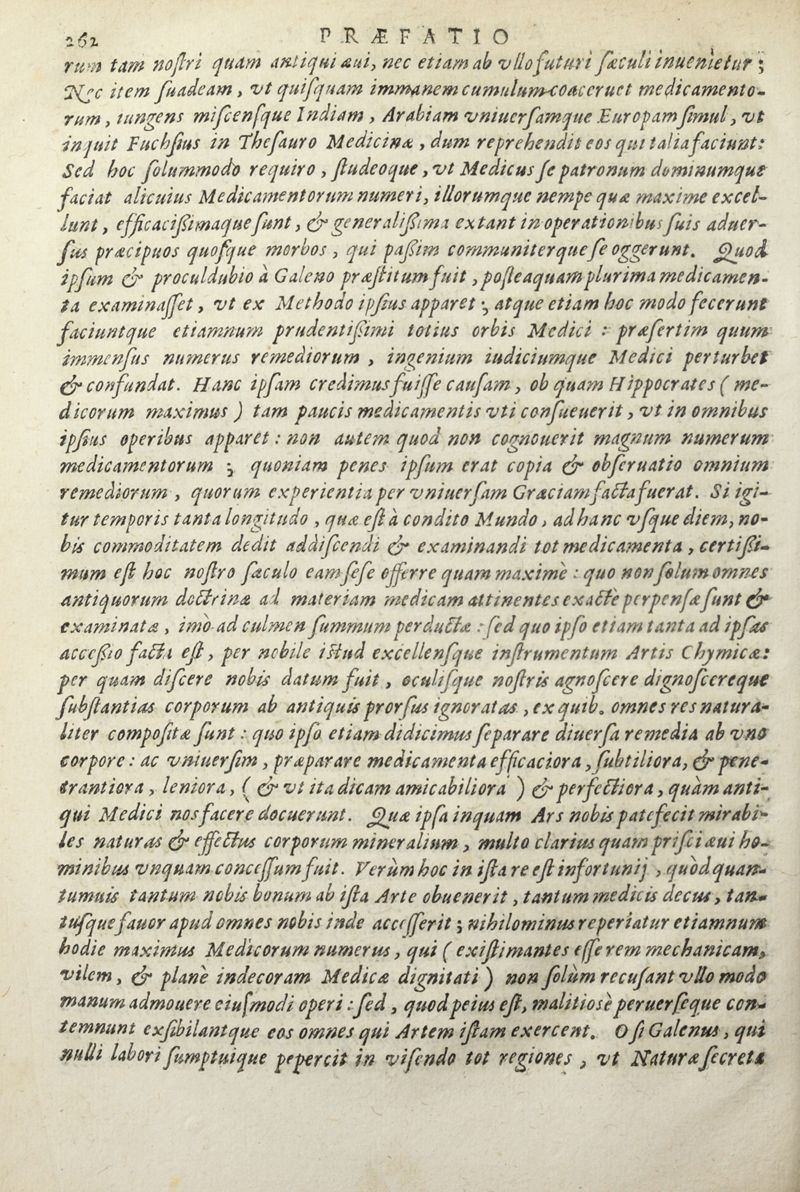 262 PRÆFATIO
rum tam nostri quàm antiqui æui, nec etiam ab vllo futuri sæculi inuenietur;
Nec item suadeam, vt quisquam immanem cumulum coaceruet medicamento-
rum, iungens miscensque Indiam, Arabiam vniuersamque Europam simul, vt
inquit Fuchsius in Thesauro Medicinæ, dum reprehendit eos qui talia faciunt:
Sed hoc solummodo requiro, studeoque, vt Medicus se patronum dominumque
faciat alicuius Medicamentorum numeri, illorumque nempe quæ maxime excel-
lunt, efficacissimaque sunt, & generalissima extant in operationibus suis aduer-
sus præcipuos quosque morbos, qui passim communiterque se oggerunt. Quod
ipsum & proculdubio à Galeno præstitum fuit, posteaquam plurima medicamen-
ta examinasset, vt ex Methodo ipsius apparet; atque etiam hoc modo fecerunt
faciuntque etiamnum prudentissimi totius orbis Medici: præsertim quum
immensus numerus remediorum, ingenium iudiciumque Medici perturbet
& confundat. Hanc ipsam credimus fuisse causam, ob quam Hippocrates (me-
dicorum maximus) tam paucis medicamentis vti consueuerit, vt in omnibus
ipsius operibus apparet: non autem quod non cognouerit magnum numerum
medicamentorum; quoniam penes ipsum erat copia & obseruatio omnium
remediorum, quorum experientia per vniuersam Græciam facta fuerat. Si igi-
tur temporis tanta longitudo, quæ est à condito Mundo, ad hanc vsque diem, no-
bis commoditatem dedit addiscendi & examinandi tot medicamenta, certissi-
mum est hoc nostro sæculo eam sese offerre quam maximè: quo non solum omnes
antiquorum doctrinæ ad materiam medicam attinentes exacte perpensæ sunt &
examinatæ, imo ad culmen summum perductæ: sed quo ipso etiam tanta ad ipsas
accessio facta est, per nobile istud excellensque instrumentum Artis Chymicæ:
per quam discere nobis datum fuit, oculisque nostris agnoscere dignoscereque
substantias corporum ab antiquis prorsus ignoratas, ex quib. omnes res natura-
liter compositæ sunt: quo ipso etiam didicimus separare diuersa remedia ab vno
corpore: ac vniuersim, præparare medicamenta efficaciora, subtiliora, & pene-
trantiora, leniora, (& vt ita dicam amicabiliora) & perfectiora, quàm anti-
qui Medici nos facere docuerunt. Quæ ipsa inquam Ars nobis patefecit mirabi-
les naturas & effectus corporum mineralium, multo clarius quam prisci æui ho-
minibus vnquam concessum fuit. Verùm hoc in ista re est infortunij, quòd quan-
tumuis tantum nobis bonum ab ista Arte obuenerit, tantum medicis decus, tan-
tusque fauor apud omnes nobis inde accesserit; nihilominus reperiatur etiamnum
hodie maximus Medicorum numerus, qui (existimantes esse rem mechanicam,
vilem, & planè indecoram Medicæ dignitati) non solùm recusant vllo modo
manum admouere eiusmodi operi: sed, quod peius est, malitiosè peruerseque con-
temnunt exsibilantque eos omnes qui Artem istam exercent. O si Galenus, qui
nulli labori sumptuique pepercit in visendo tot regiones, vt Naturæ secreta